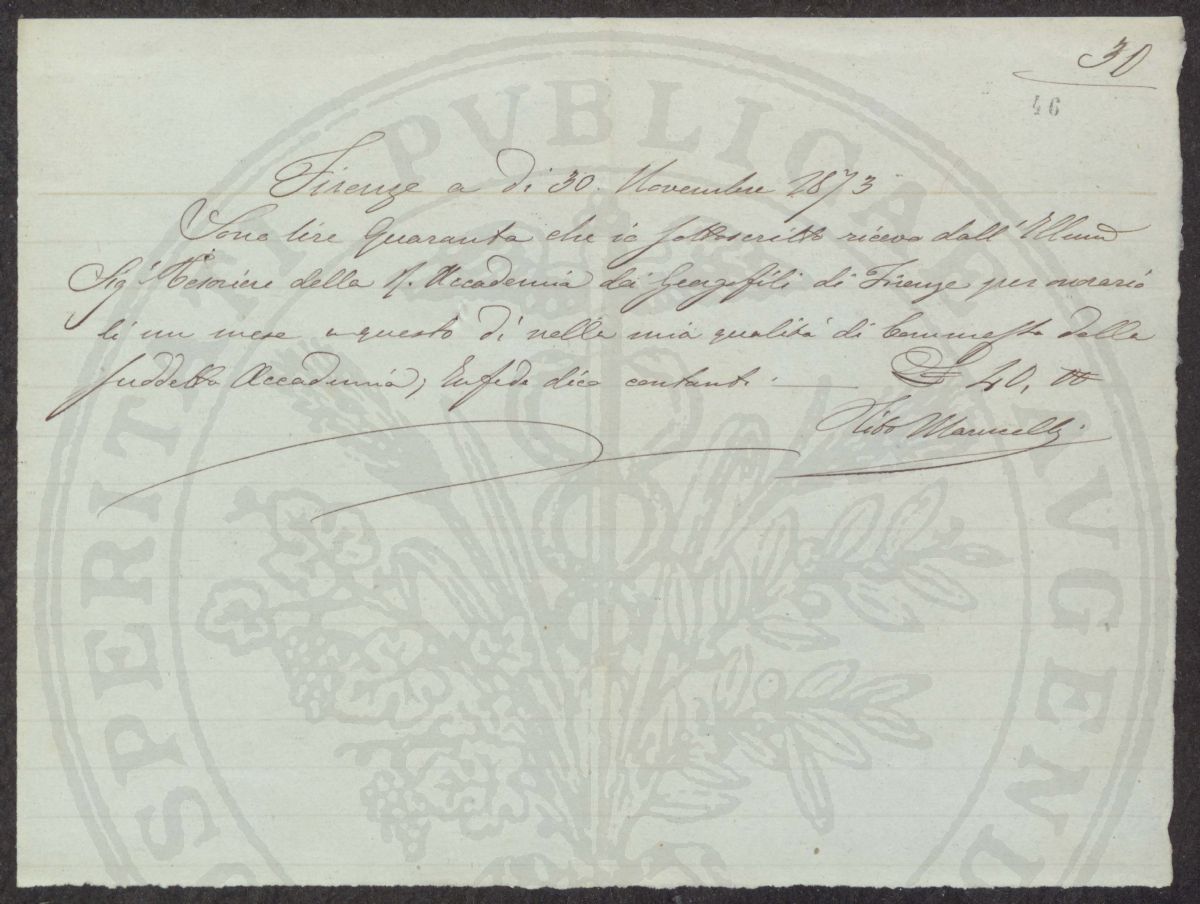 30
46
Firenze a di 30. Novembre 1873
Sono lire Quaranta che io sottoscritto ricevo dall' Illmo
Sigr Tesoriere della R. Accademia dei Georgofili di Firenze per onorario
di un mese a questo dì nella mia qualità di Commesso della
suddetta Accademia; In fede dico contanti. £ 40,00
Marucelli
PROSPERITATI PVBLICAE AVGENDAE